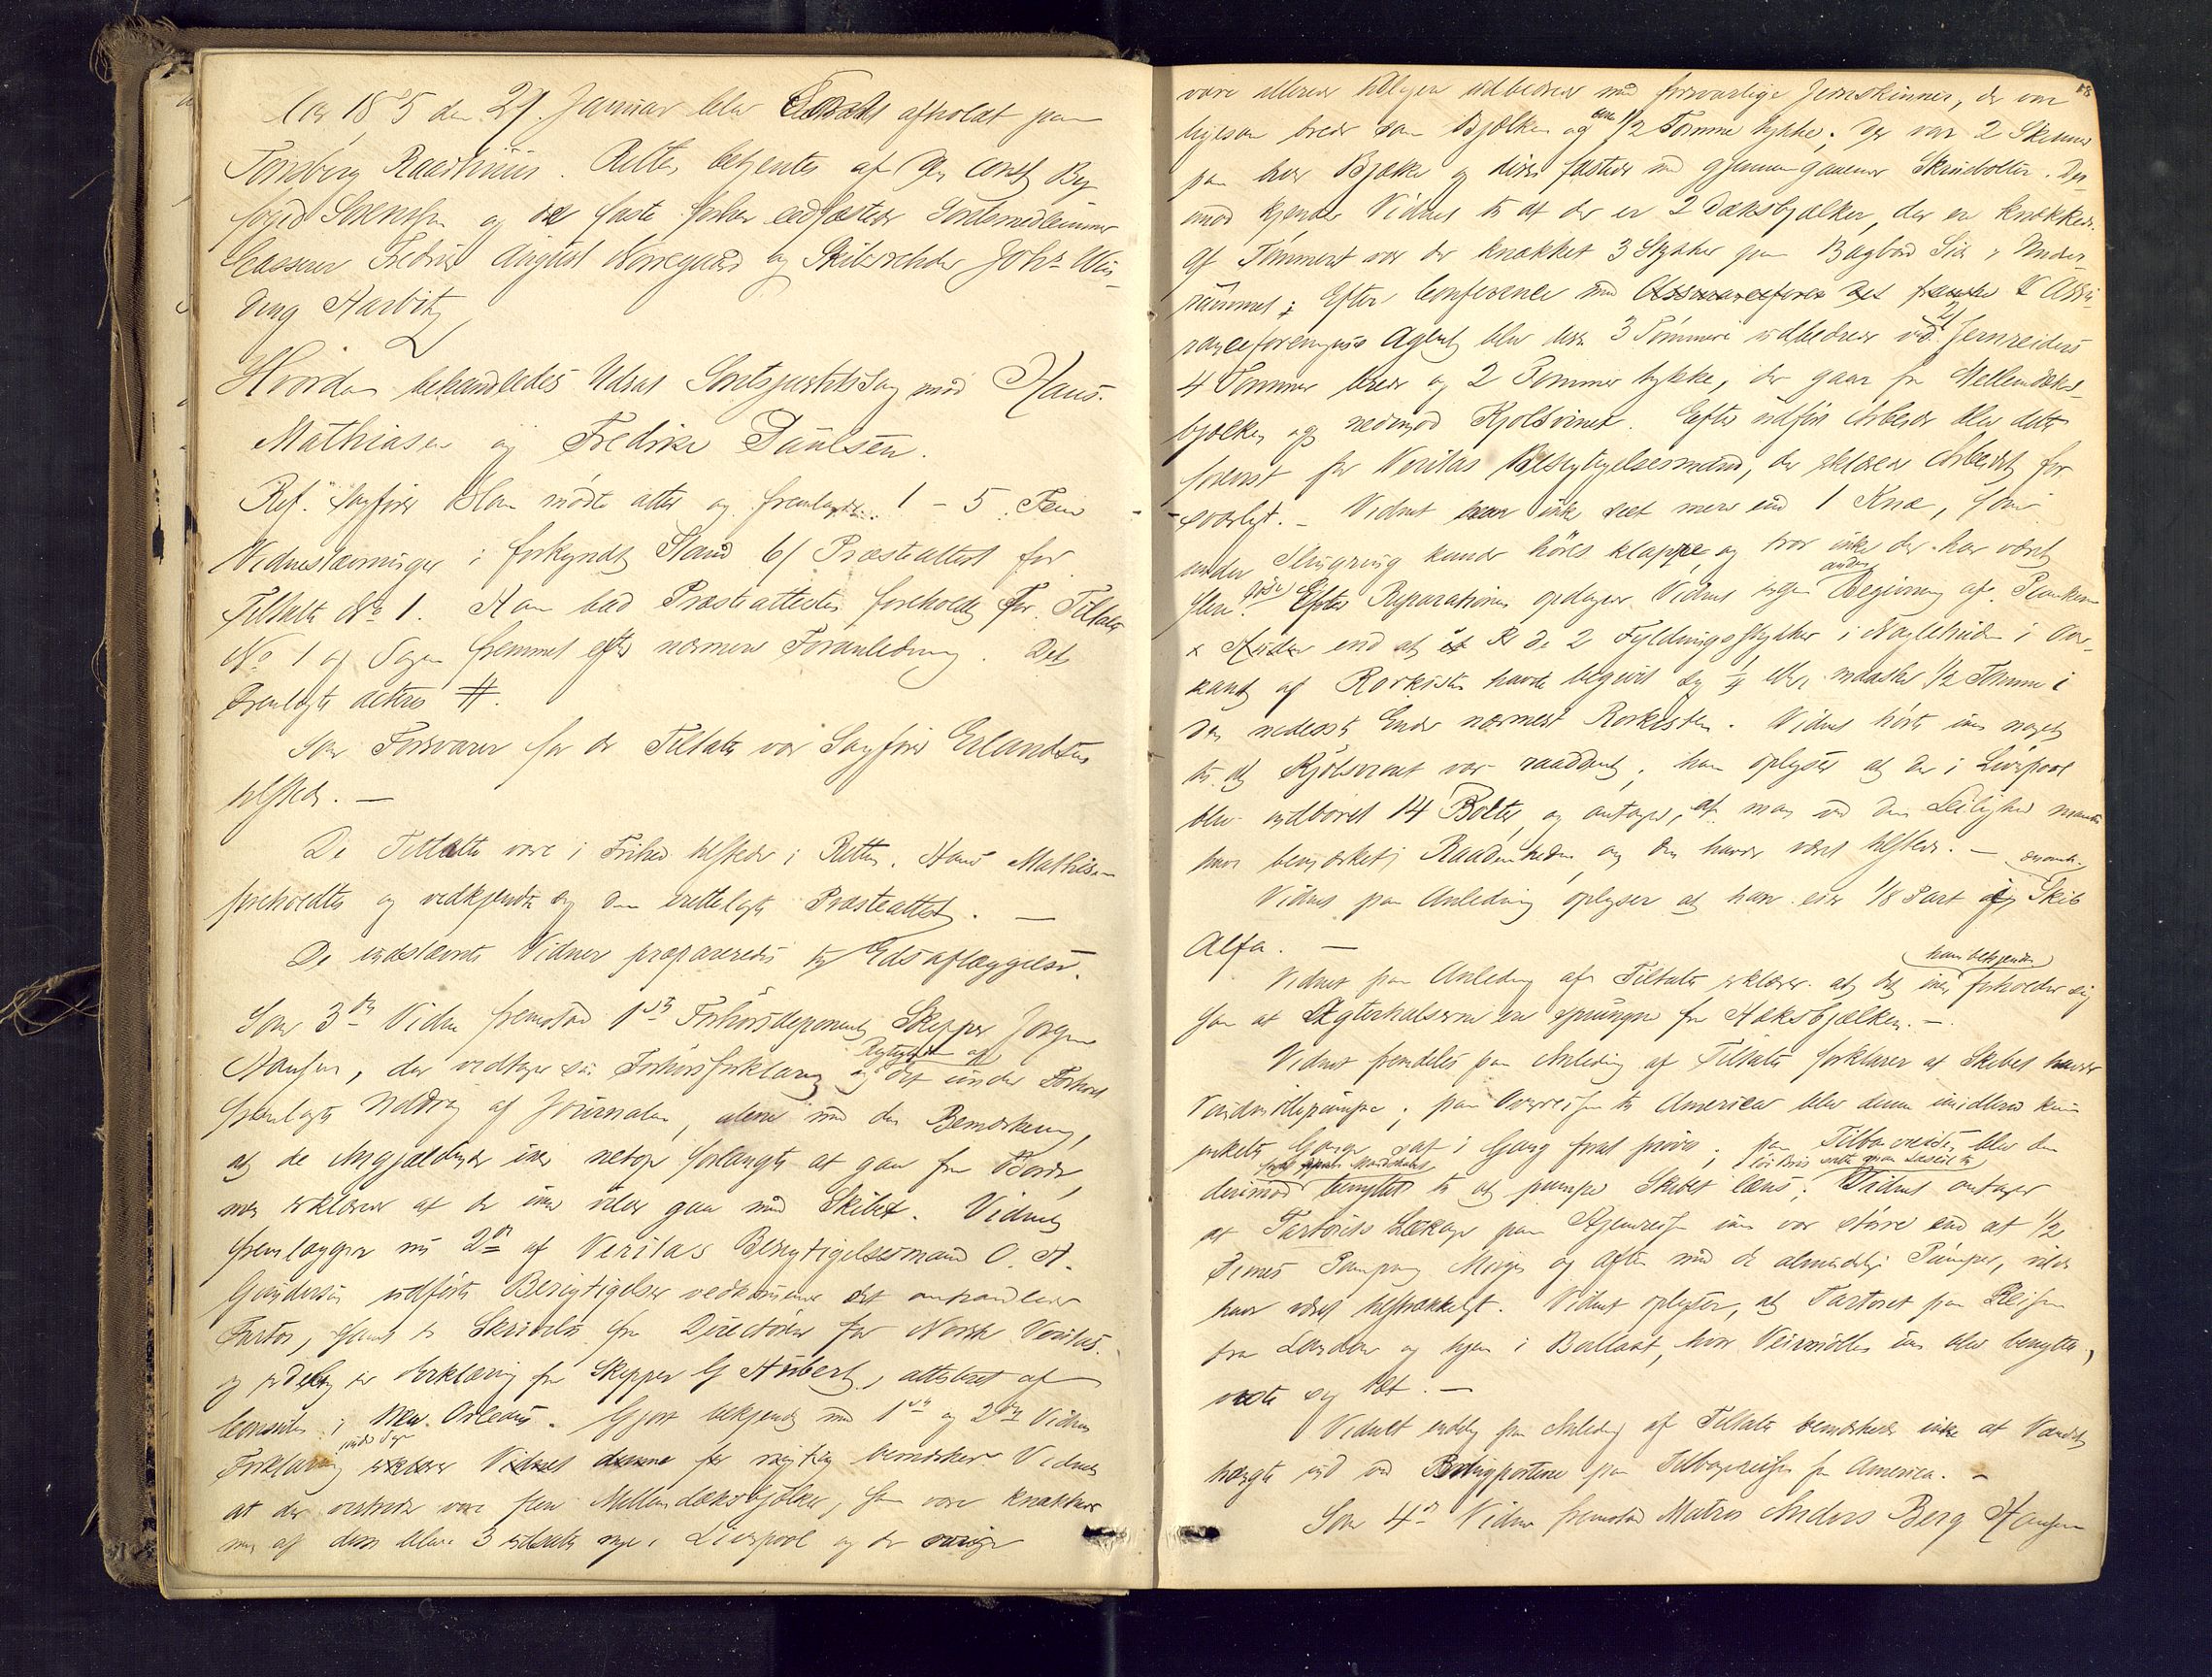 Aar 1885 den 27. Januar blev Extraret afholdt paa
Tønsberg Raadhuus. Retten betjentes af const. By
foged Svensen og de faste forhen edfæstede Søretsmedlemmer
Casserer Fredrik August Norregaard og Skibsreder Johs Win-
ding Harbitz
Hvorda behandledes Udsat Søretsjustitssag mod Hans
Mathiasen og Fredrik Paulsen.
Ref. Sagfører Blom mødte atter og fremlagde 1 - 5. Fem
Vidnestævninger i forkyndt Stand 6/ Præsteattest for
Tiltalte No 1. Han bad Præsteattesten foreholdt for Tiltalte
No 1 og Sagen fremmet efter nærmere Foranledning. Det
Fremlagte acteres #.
Som Forsvarer for de Tiltalte var Sagfører Erlandsen
tilstede. —
De Tiltalte vare i Frihed tilstede i Retten. Hans Mathisen
foreholdtes og vedkjendte sig den irettelagte Præsteattest. —
De indstævnte Vidner præpareredes til Edsaflæggelse.
Som 3die Vidne fremstod 1ste Forhørsdeponent Skipper Jørgen
Hansen, der vedtager sin Forhørsforklaring og Rigtigheden af det under Forhøret
fremlagte Uddrag af Journalen, alene med den Bemærkning,
at de Angjældende ikke netop forlangte at gaa fra Borde,
men erklærede at de ikke vilde gaa med Skibet. Vidnet
fremlægger nu 2de af Veritas Besigtigelsesmand O. A.
Gundersen udførte Besigtigelser vedkommende det omhandlede
Fartøi, samt en Skrivelse fra Directøren for Norsk Veritas.
og endelig en Erklæring fra Skipper G Aubert, attesteret af
Consulen i New-Orleans. Gjort bekjendt med 1ste og 2det Vidnes
Forklaring under Sagen erklærer Vidnet denne for rigtig bemærker Vidnet
at der vistnok vare flere Mellemdæksbjælker, som vare knækkede
men af disse bleve 3 indsatte nye i Liverpool og de øvrige
58
vare allerede tidligere udbedrede med forsvarlige Jernskinner, der var
ligesaa brede som Bjælken og 1/2 Tomme tykke; der var 2 Skinner
paa hver Bjælke og disse fæstede med gjennemgaaende Skruebolter. Der-
imod kjender Vidnet til at der er 2 Dæksbjælker, der er knækkede.
Af Tømmeret var der knækket 3 Stykker paa Bagbord Side i Under-
rummet; Efter Conference med Assu-
ranceforeningens Agent blev disse 3 Tømmere udbedrede ved 2 Jernreiders
4 Tommer brede og 2 Tommer tykke, der gaar fra Mellemdæks-
bjælken og nedimod Kjølsvinet. Efter udført Arbeide blev dette
forevist for Veritas Besigtigelsesmand, der erklærede Arbeidet for
svarligt. - Vidnet har ikke seet mere end 1 Knæ, som
under Slingring kunde høres klappe, og tror ikke der har været
flere løse. Efter Reparationen opdagede Vidnet ingen anden Begivning af Planken
end at de 2 Fyldningsstykker i Nagletræden i For-
kant af Rorkisten havde begivet sig 1/4 eller maaske 1/2 Tomme i
den nederste Ende nærmest Rorkisten. Vidnet hørte ikke noget
til at Kjølsvinet var raaddent; han oplyste at der i Liverpool
blev udboret 14 Bolter, og antager, at man ved den Leilighed maatte
have bemærket Raaddenheden, om den havde været tilstede. —
Vidnet paa Anledning oplyser at han eier 1/8 Part i Skib
Alfa. —
Vidnet paa Anledning af Tiltalte erklærer at det ham bekjendt ikke forholder sig
saa at Agterhalserne er sprungne fra Hæksbjælken. —
Vidnet fremdeles paa Anledning af Tiltalte forklarer at Skibet havde
Veirmøllepumpe; paa Overreisen til America blev denne imidlertid kun
enkelte Gange sat i Gang for at prøve; paa Tilbagereisen blev den
derimod benyttet til at pumpe Skibet læns; Vidnet antager
at Fartøiets Lækage paa Hjemreisen ikke var større end at 1/2
Times Pumping Morgen og Aften med de almindelige Pumper, vilde
have været tilstrækkeligt. Vidnet oplyste, at Fartøiet paa Reisen
fra London og hjem i Ballast, hvor Veirmøllen ikke blev benyttet,
viste sig tæt. —
Vidnet endelig paa Anledning af Tiltalte bemærkede ikke at Vandet
trængte ind ved Bougportene paa Tilbagereisen fra America. —
Som 4de Vidne fremstod Matros Anders Berg Hansen